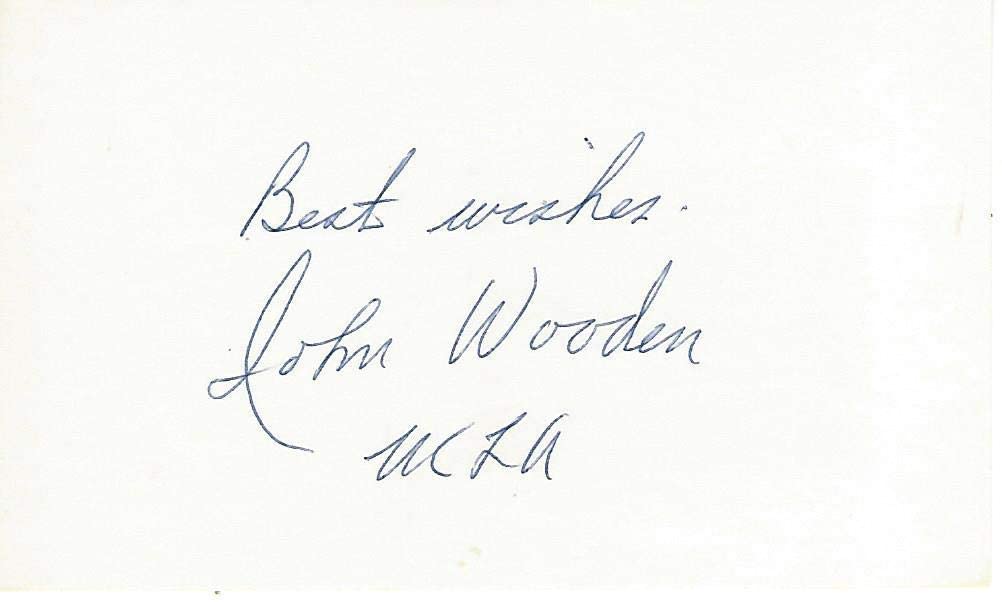 Best wishes.
John Wooden
UCLA